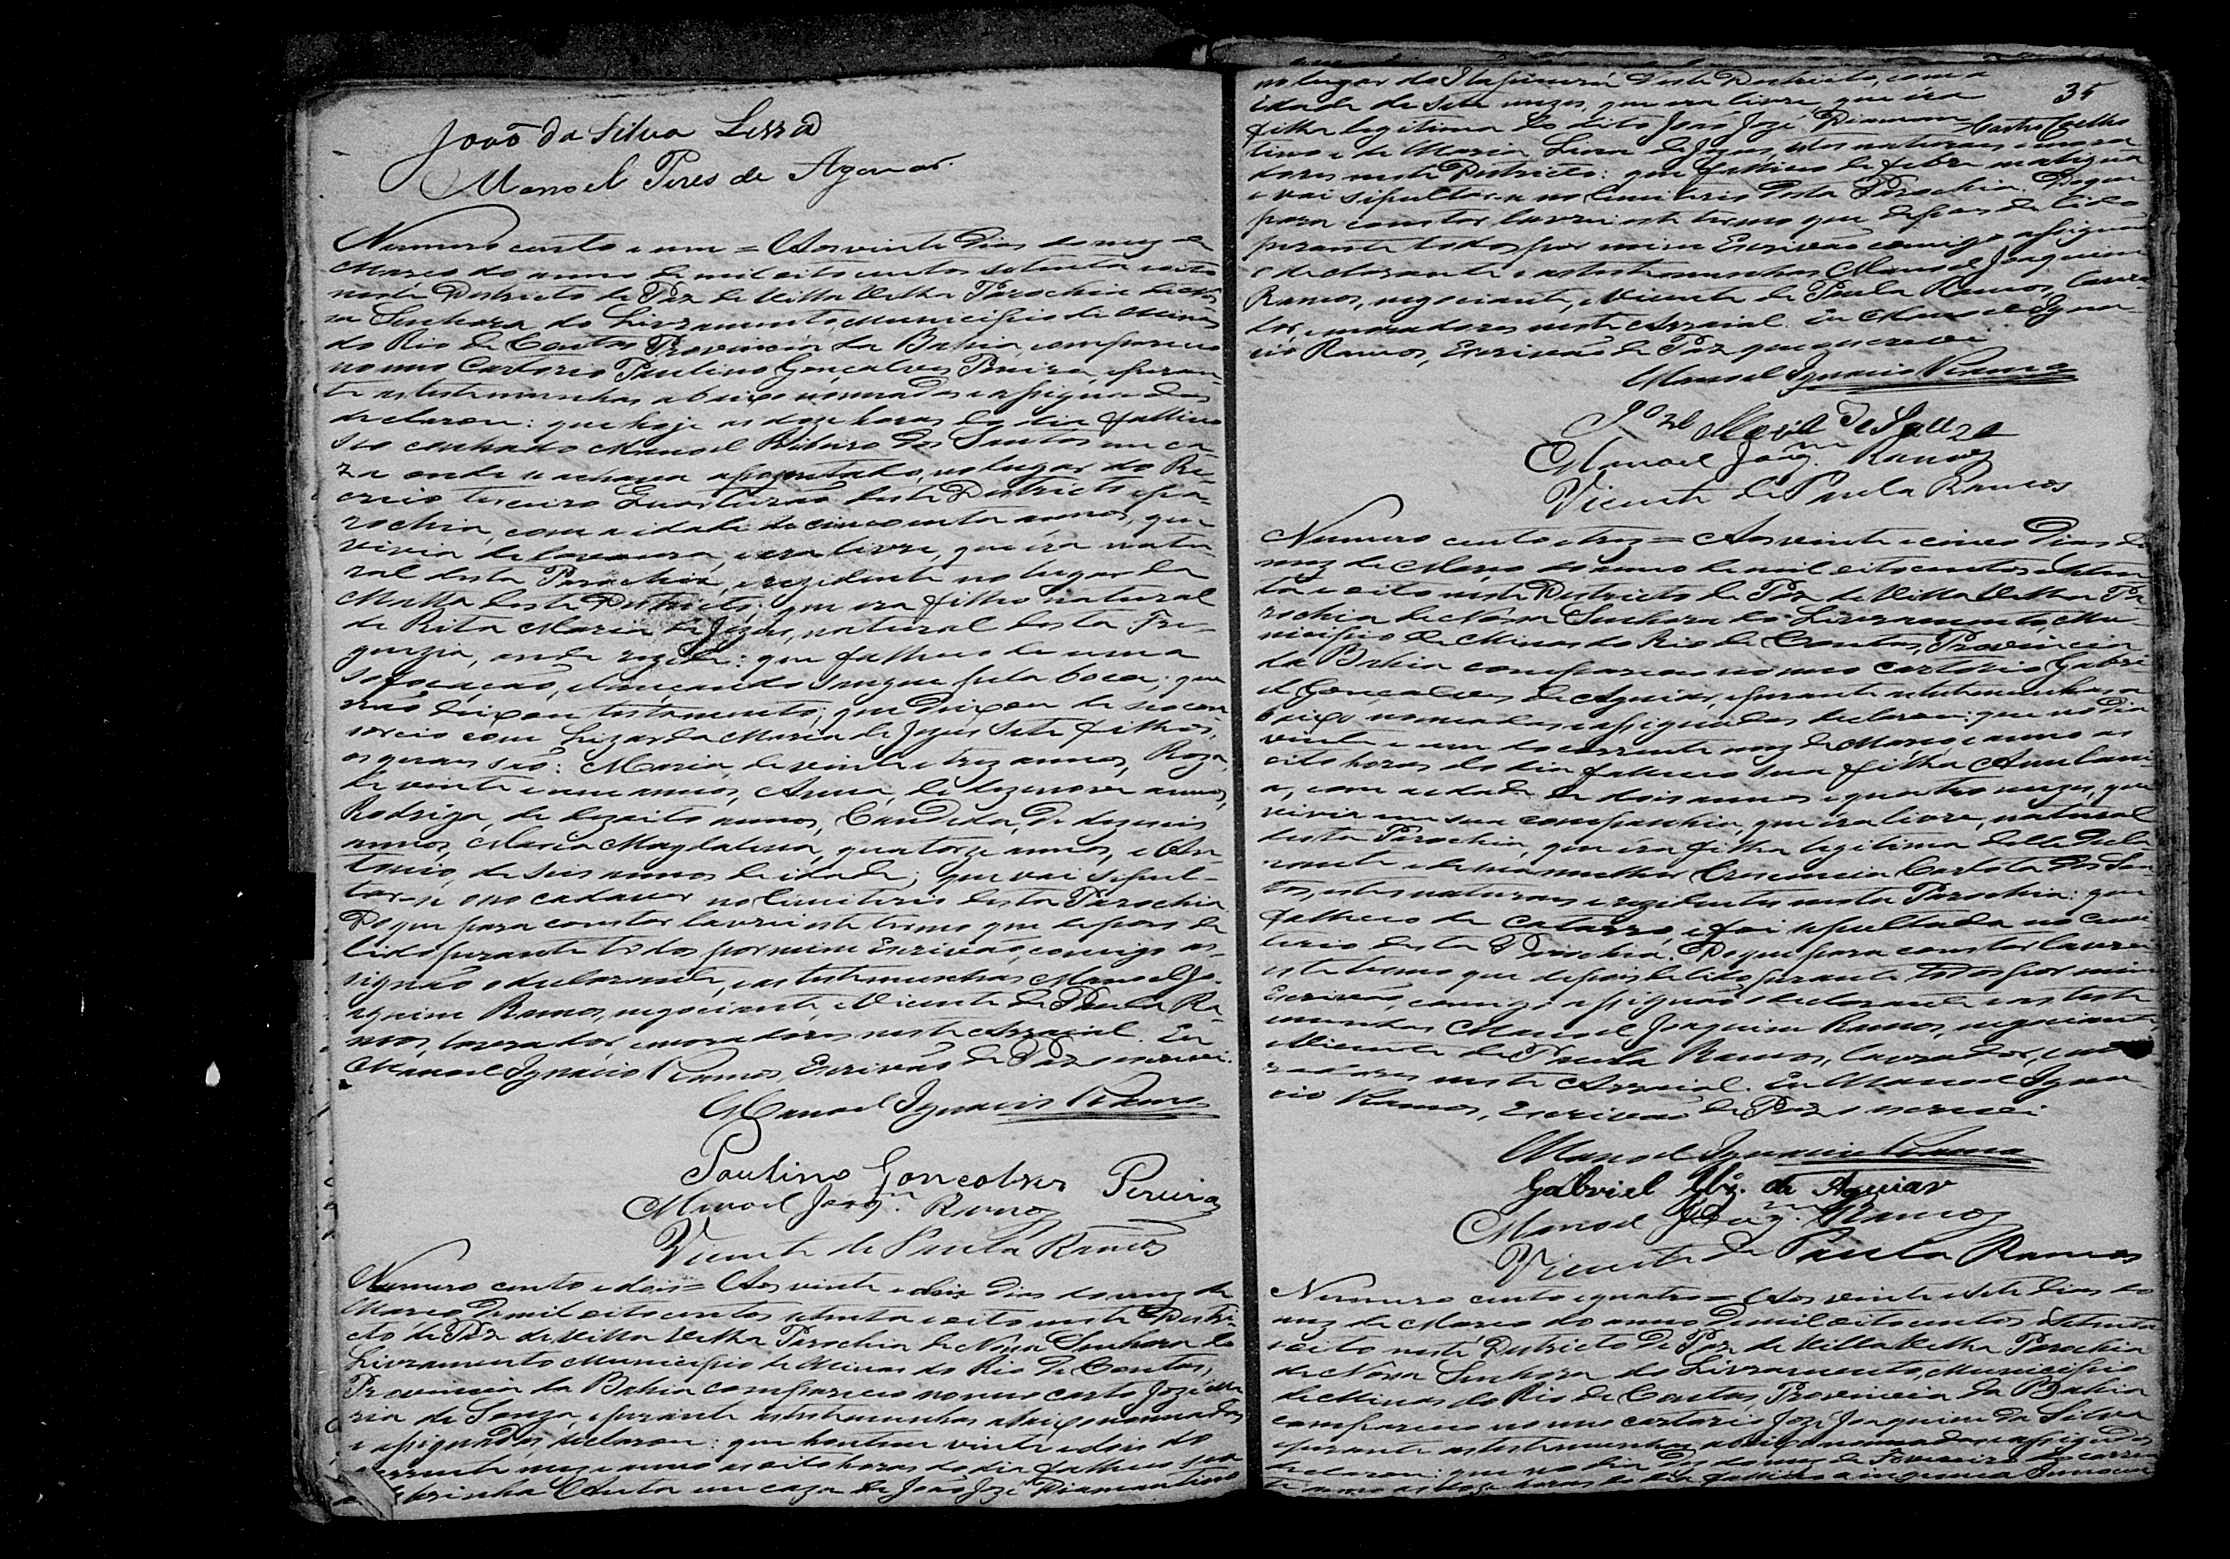 João da Silva Lessa
Manoel Pires de Aguiar.
Numero cento e um = Aos vinte dias do mez de
Março do anno de mil oito centos setenta e oito
neste Districto de Paz de Villa Velha Parochia de Nos-
sa Senhora do Livramento, Municipio de Minas
do Rio de Contas Provincia da Bahia, compareceo
no meo Cartorio Paulino Gonçalves Pereira, e peran-
te as testemunhas abaixo nomeadas e assignadas
declarou: que hoje as doze horas do dia falleceo
seo cunhado Manoel Ribeiro dos Santos em ca-
za onde se achava aposentado, no lugar do
terceiro Quarteirão deste Districto e pa-
rochia, com a idade de cincoenta annos, que
vivia de lavoura, e era livre, que era natu-
ral desta Parochia, e rezidente no lugar da
Matta deste Districto: que era filho natural
de Rita Maria de Jezus, natural desta Fre-
guezia, onde rezide: que falleceo de uma
sofocação, e lançando sangue pela boca; que
não deixou testamento; que deixou de seo con-
sorcio com Lizarda Maria de Jezus sete filhos,
os quaes são: Maria, de vinte e trez annos, Roza,
de vinte e um annos, Anna, de dezenove annos,
Rodriga, de dezoito annos, Candida, de dezeseis
annos, Maria Magdalena, quatorze annos, e An-
tonio, de seis annos de idade; que vai sepul-
tar-se o seo cadaver no Cemiterio desta Parochia.
Do que para constar lavrei este termo que depois de
lido perante todos por mim Escrivão, comigo as-
signão o declarante, e as testemunhas Manoel Jo-
aquim Ramos, negociante, e Vicente de Paula Ra-
mos, lavrador, e moradores neste Arraial. Eu
Manoel Ignacio Ramos, Escrivão de Paz o escrevi.
Manoel Ignacio Ramos
Paulino Goncalves Pereira
Manoel Joaqm. Ramos
Vicente de Paula Ramos
Numero cento e dois = Aos vinte e dois dias do mez de
Março de mil oito centos setenta e oito neste Distri-
cto de Paz de Villa Velha Parochia de Nossa Senhora do
Livramento Municipio de Minas do Rio de Contas,
Provincia da Bahia compareceo no meo carto Jozé Ma-
ria de Souza, e perante as testemunhas abaixo nomeadas
e assignadas, declarou: que hontem vinte e dois do
corrente mez e anno as oito horas do dia falleceo sua
em caza de João Jozé Diamantino
35
no lugar do deste Districto, com a
idade de sete mezes, que era livre, que era
filha legitima do dito João Jozé Diaman-
Castro Coelho
tino e de Maria de Jezus, estes naturaes e mora-
dores neste Districto: que falleceo de febre maligna
e vai sepultar-se no Cemiterio desta Parochia. Do que
para constar lavrei este termo que depois de lido
perante todos por mim Escrivão comigo assignão
o declarante e as testemunhas Manoel Joaquim
Ramos, negociante, e Vicente de Paula Ramos, lavra-
dor, e moradores neste Arraial. Eu Manoel Igna-
cio Ramos, Escrivão de Paz que o escrevi
Manoel Ignacio Ramos
Jozé Maria de Souza
Manoel Joaqm. Ramos
Vicente de Paula Ramos
Numero cento e trez = Aos vinte e cinco dias do
mez de Março do anno de mil oito centos e seten-
ta e oito neste Districto de Paz de Villa Velha Pa-
rochia de Nossa Senhora do Livramento, Mu-
nicipio de Minas do Rio de Contas, Provincia
da Bahia compareceo no meo cartorio Gabri-
el Gonçalves de Aguiar, e perante as testemunhas a-
baixo nomeadas e assignadas declarou: que no dia
vinte e um do corrente mez de Março e anno as
oito horas do dia falleceo sua filha
com a idade de dois annos e quatro mezes, que
vivia em sua companhia, que era livre, natural
desta Parochia, que era filha legitima delle decla-
rante e de sua mulher Crescencia Carlota dos San-
tos, estes naturaes e rezidentes nesta Parochia: que
falleceo de catarro, e foi sepultada no Cemi-
terio desta Parochia. Do que para constar lavrei
este termo que depois de lido perante todos por mim
Escrivão, comigo assignão o declarante e as teste-
munhas Manoel Joaquim Ramos, negociante,
e Vicente de Paula Ramos, lavrador, e mo-
radores neste Arraial. Eu Manoel Igna-
cio Ramos, Escrivão de Paz o escrevi
Manoel Ignacio Ramos
Gabriel Glz. de Aguiar
Manoel Joaqm. Ramos
Vicente de Paula Ramos
Numero cento e quatro = Aos vinte e sete dias do
mez de Março do anno de mil oito centos e setenta
e oito neste Districto de Paz de Villa Velha Parochia
de Nossa Senhora do Livramento, Municipio
de Minas do Rio de Contas, Provincia da Bahia
compareceo no meo cartorio Jozé Joaquim da Silva
e perante as testemunhas abaixo nomeadas e assignadas
declarou: que no dia dez do mez de Fevereiro do corren-
te anno as doze horas do dia falleceo a